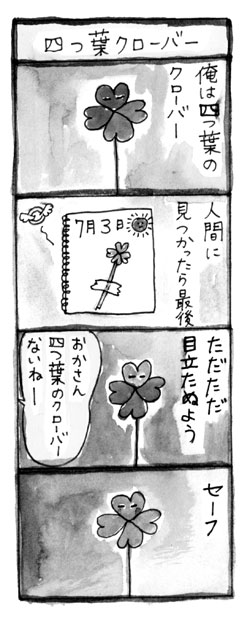 四つ葉クローバー
俺は四つ葉の
クローバー
人間に
見つかったら最後
7月3日
ただただ
目立たぬよう
おかさん
四つ葉のクローバー
ないねー
セーフ